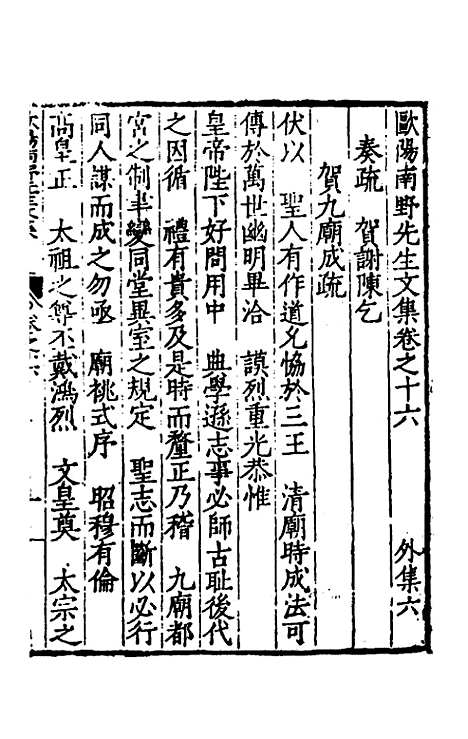 歐陽南野先生文集卷之十六 外集六
奏疏 賀謝陳乞
賀九廟成疏
伏以 聖人有作道允協於三王 清廟時成法可
傳於萬世幽明畢洽 謨烈重光恭惟
皇帝陛下好問用中 典學遜志事必師古耻後代
之因循 禮有貴多及是時而釐正乃稽 九廟都
宮之制聿變同堂異室之規定 聖志而斷以必行
同人謀而成之勿亟 廟祧式序 昭穆有倫
高皇正 太祖之尊丕戴鴻烈 文皇奠 太宗之